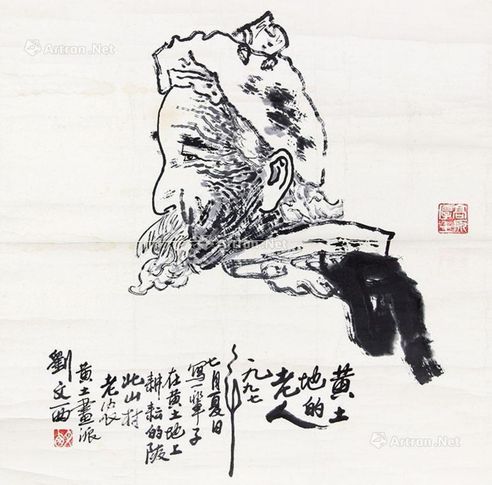 黄土
地的
老人
一九九七
年
七月夏日
写一輩子
在黄土地上
耕耘的陕
北山村
老农
黄土畫派
劉文西
Artron.Net
Artron.Net
Artron.Net
Artron.Net